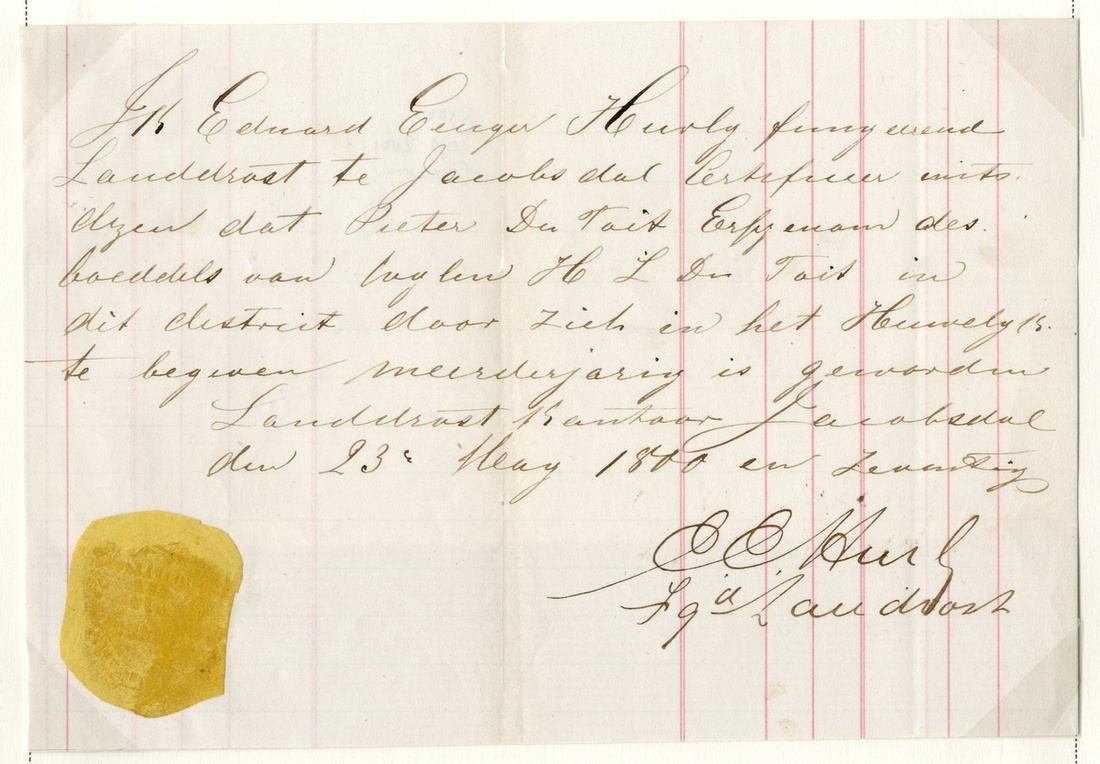 Ik Eduard Eeuger Hurly fungeerend
Landdrost te Jacobsdal Certifieer mits
dzen dat Pieter Du Toit Erfgenam des
boeddels van wylen H L Du Toit in
dit destreit door zich in het Huwelyk
te begeven meerderjarig is geworden
Landdrost Kantoor Jacobsdal
den 23e May 1800 en zeventig
E E Hurly
Fgd Landdrost